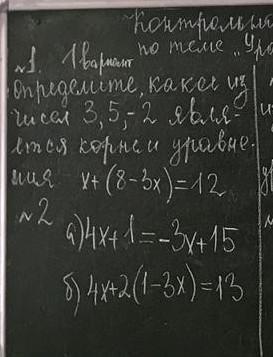 Контрольная
по теме „Ура
№1. 1 вариант
определите, какое из
чисел 3, 5, -2 явля-
ется корнем уравне-
ния x+(8-3x)=12
№2
а) 4x+1=-3x+15
б) 4x+2(1-3x)=13